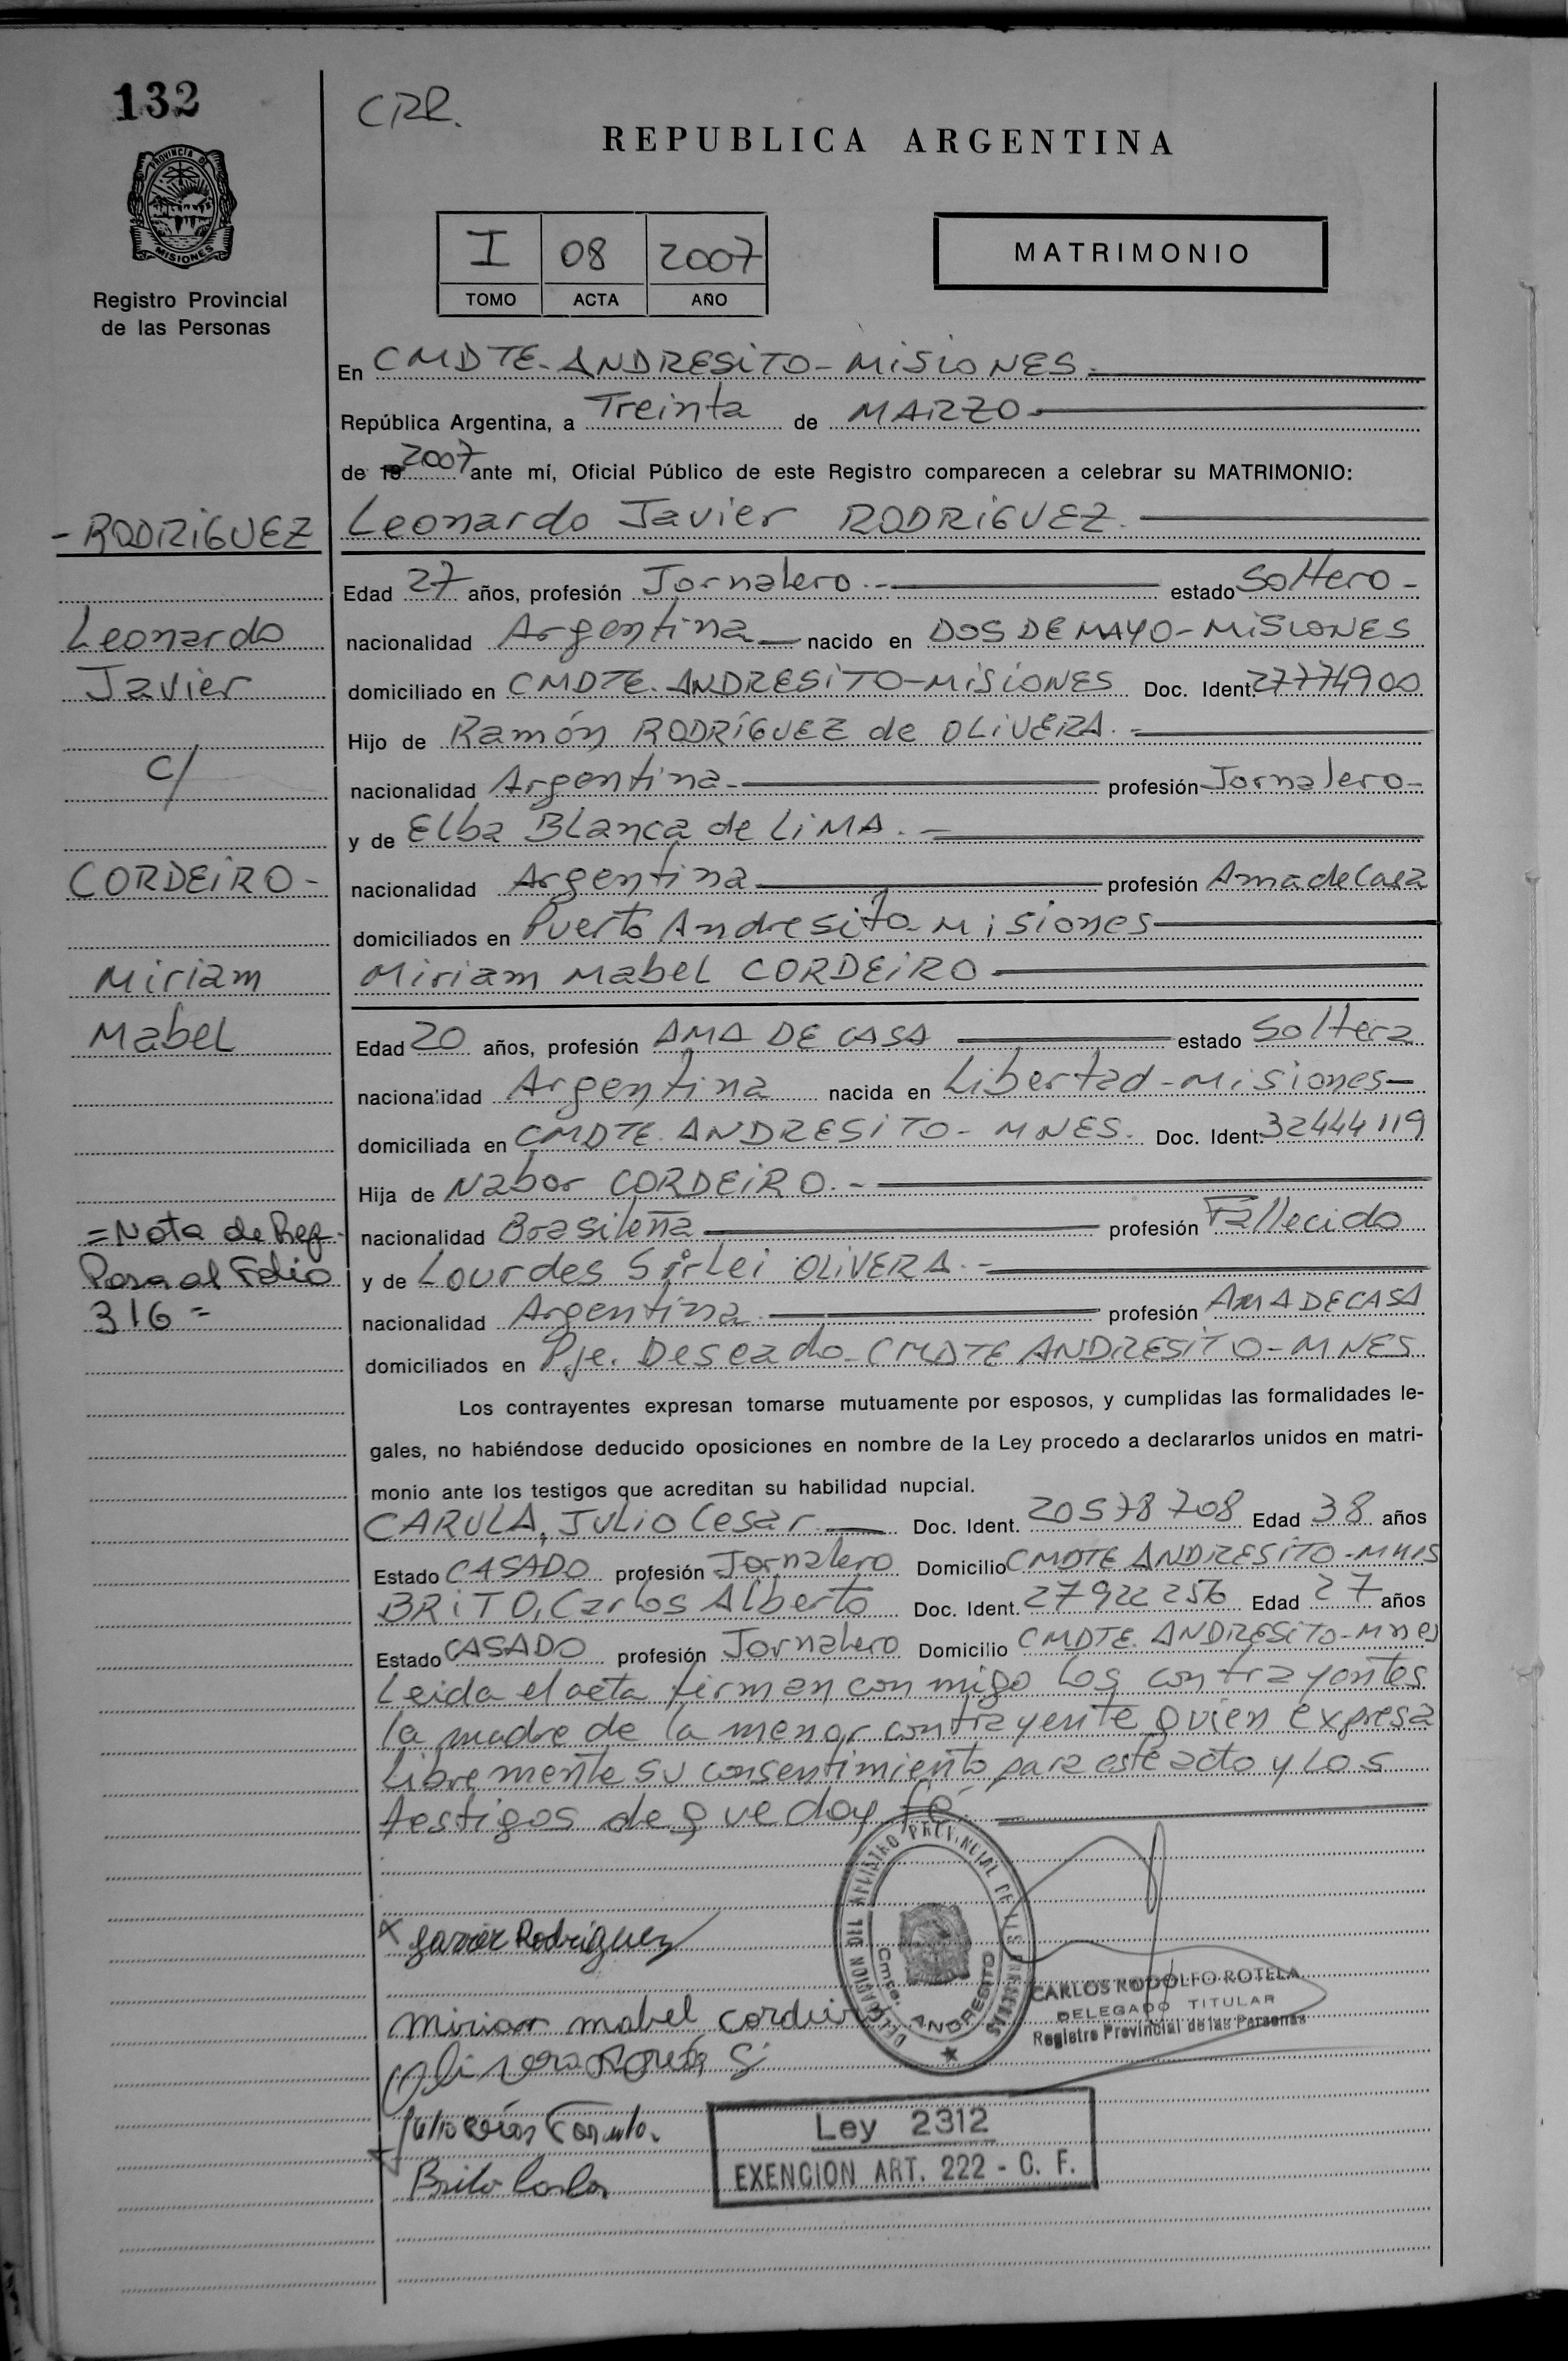 132
CRR.
REPUBLICA ARGENTINA
PROVINCIA DE MISIONES
Registro Provincial
de las Personas
I 08 2007
TOMO ACTA AÑO
MATRIMONIO
En CMDTE. ANDRESITO - MISIONES.
República Argentina, a Treinta de MARZO
de 19 2007 ante mí, Oficial Público de este Registro comparecen a celebrar su MATRIMONIO:
- RODRIGUEZ
Leonardo Javier RODRIGUEZ.
Edad 27 años, profesión Jornalero.- estado Soltero -
Leonardo
nacionalidad Argentina nacido en DOS DE MAYO - MISIONES
Javier
domiciliado en CMDTE. ANDRESITO - MISIONES Doc. Ident. 27774900
Hijo de Ramón RODRÍGUEZ de OLIVERA. -
C/
nacionalidad Argentina- profesión Jornalero-
y de Elba Blanca de LIMA. -
CORDEIRO -
nacionalidad Argentina profesión Ama de Casa
domiciliados en Puerto Andresito - Misiones
Miriam
Miriam Mabel CORDEIRO
Mabel
Edad 20 años, profesión AMA DE CASA estado Soltera
nacionalidad Argentina nacida en Libertad - Misiones
domiciliada en CMDTE. ANDRESITO - MNES. Doc. Ident. 32444119
Hija de Nabor CORDEIRO. -
= Nota de Ref.
nacionalidad Brasileña profesión Fallecido
Pasa al Folio
y de Lourdes Sirlei OLIVERA. -
316 =
nacionalidad Argentina. profesión AMA DE CASA
domiciliados en Pje. Deseado - CMDTE ANDRESITO - MNES
Los contrayentes expresan tomarse mutuamente por esposos, y cumplidas las formalidades le-
gales, no habiéndose deducido oposiciones en nombre de la Ley procedo a declararlos unidos en matri-
monio ante los testigos que acreditan su habilidad nupcial.
CARULA, JULIO Cesar. Doc. Ident. 20578708 Edad 38 años
Estado CASADO profesión Jornalero Domicilio CMDTE ANDRESITO - MNES
BRITO, Carlos Alberto Doc. Ident. 27922256 Edad 27 años
Estado CASADO profesión Jornalero Domicilio CMDTE. ANDRESITO - Mnes
Leida el acta firman conmigo los contrayentes
la madre de la menor contrayente quien expresa
Libremente su consentimiento para este acto y los
testigos de que doy fé.
DELEGACION DEL REGISTRO PROVINCIAL DE LAS PERSONAS
Cmte. ANDRESITO
x Javier Rodriguez
CARLOS RODOLFO ROTELA
DELEGADO TITULAR
Registro Provincial de las Personas
miriam mabel cordeiro
Julio
Brito Carlos
Ley 2312
EXENCION ART. 222 - C. F.